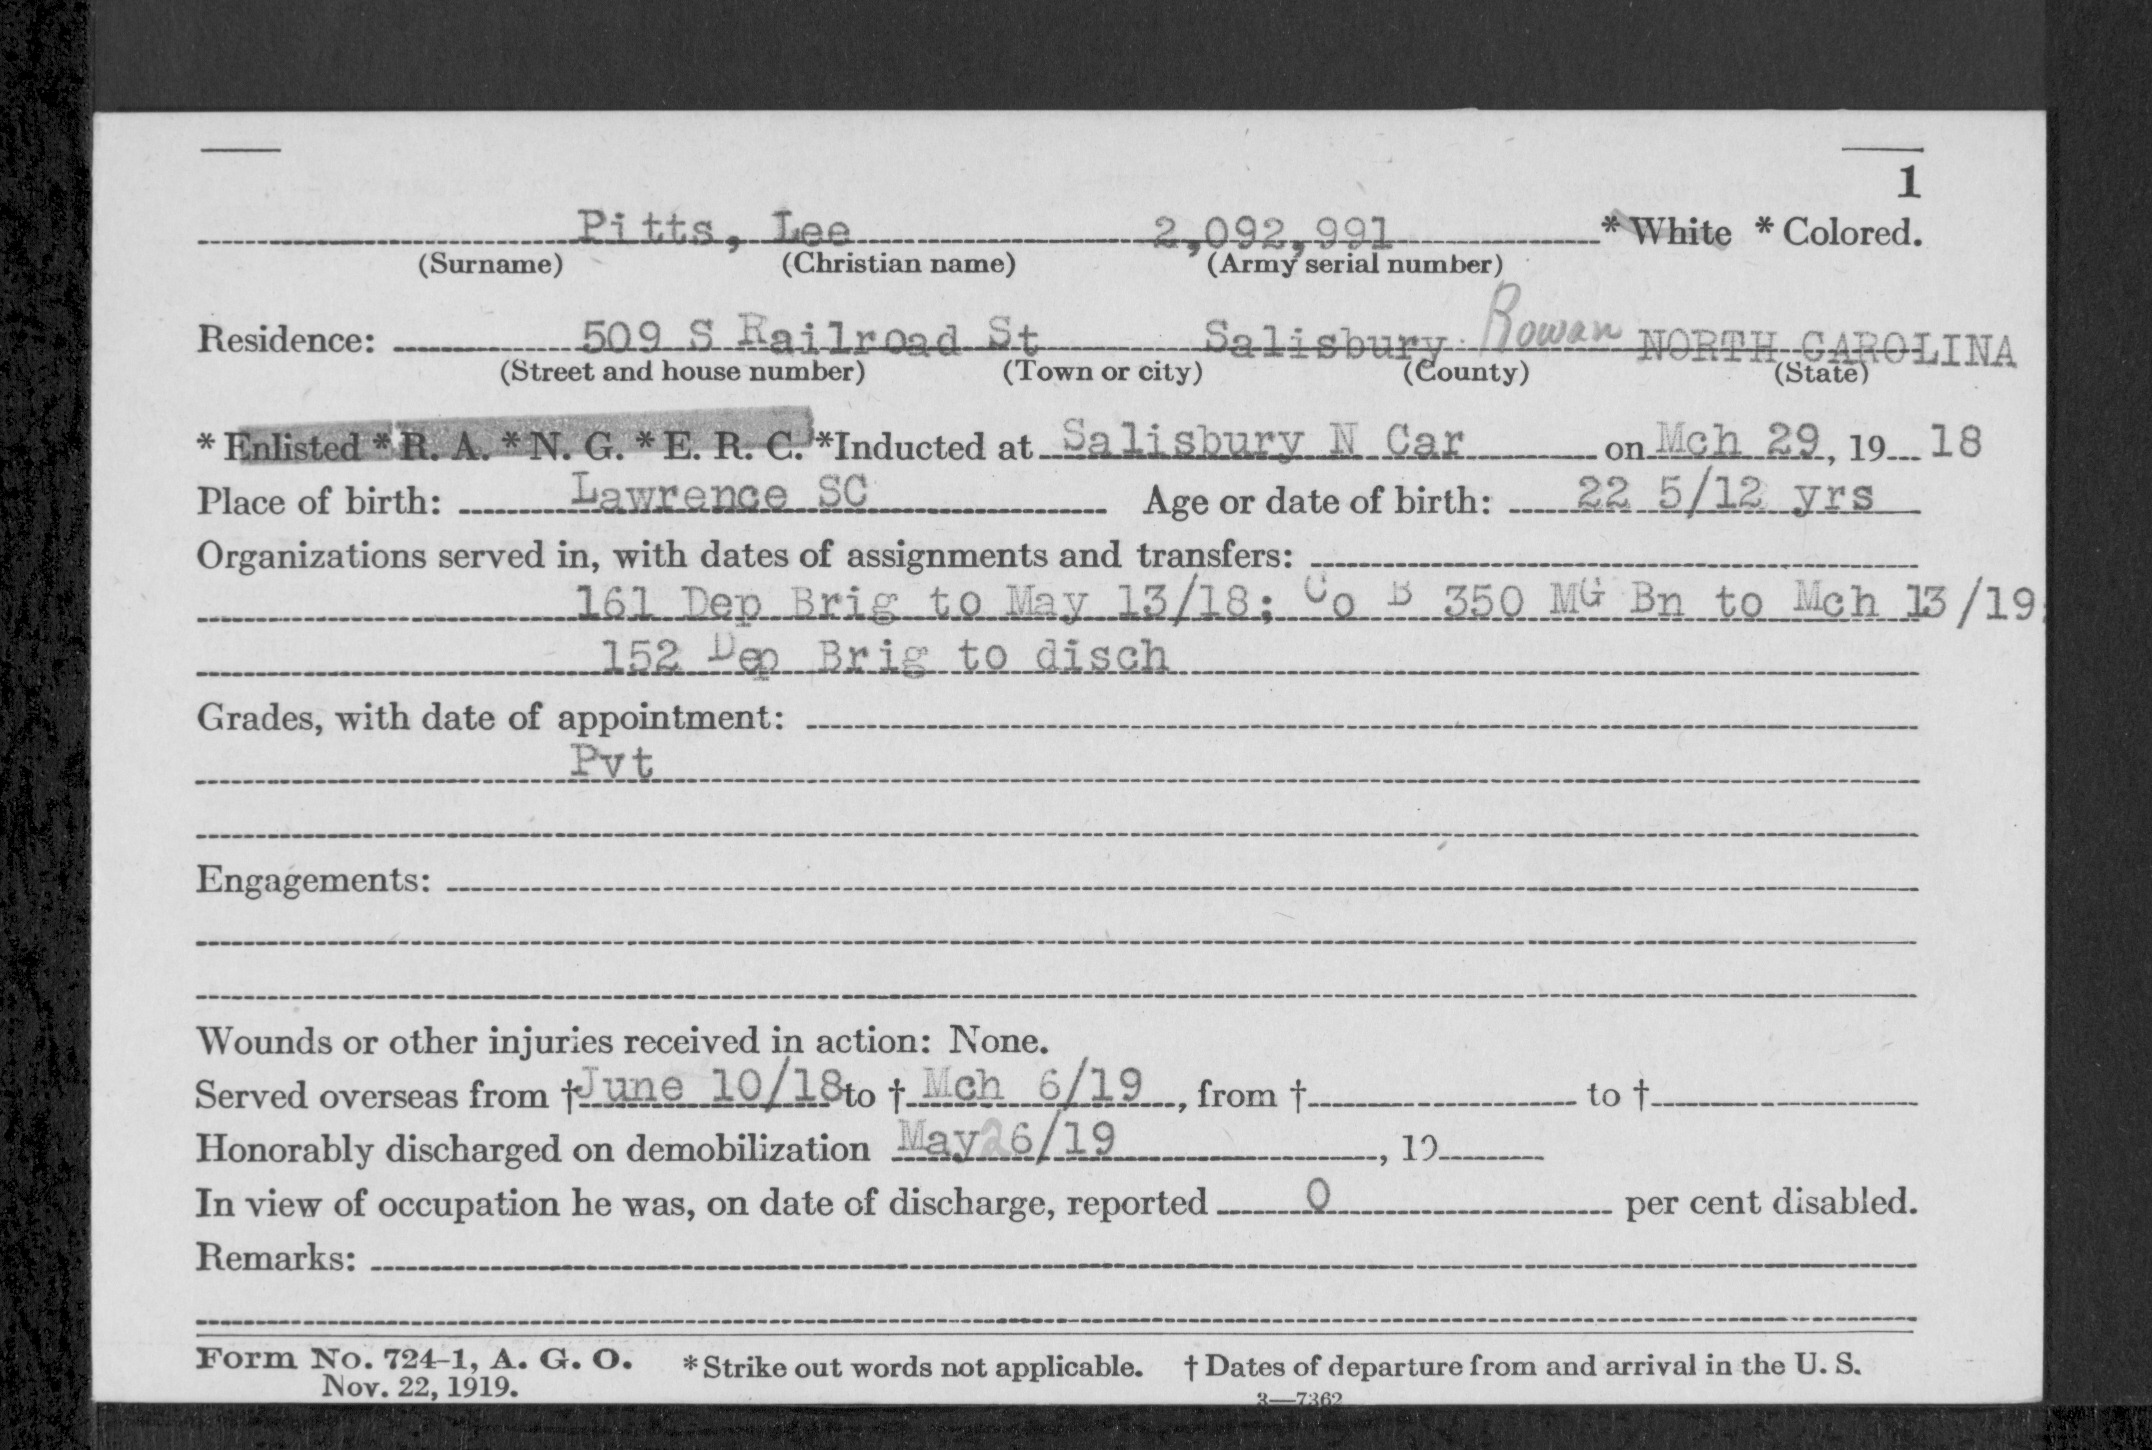 1
Pitts, Lee 2,092,991 * White * Colored.
(Surname) (Christian name) (Army serial number)
Residence: 509 S Railroad St Salisbury Rowan NORTH CAROLINA
(Street and house number) (Town or city) (County) (State)
* Enlisted * R. A. * N. G. * E. R. C. *Inducted at Salisbury N Car on Mch 29, 19 18
Place of birth: Lawrence SC Age or date of birth: 22 5/12 yrs
Organizations served in, with dates of assignments and transfers:
161 Dep Brig to May 13/18; Co B 350 MG Bn to Mch 13/19;
152 Dep Brig to disch
Grades, with date of appointment:
Pvt
Engagements:
Wounds or other injuries received in action: None.
Served overseas from † June 10/18 to † Mch 6/19, from † to †
Honorably discharged on demobilization May 26/19, 19
In view of occupation he was, on date of discharge, reported 0 per cent disabled.
Remarks:
Form No. 724-1, A. G. O. * Strike out words not applicable. † Dates of departure from and arrival in the U. S.
Nov. 22, 1919. 3—7362